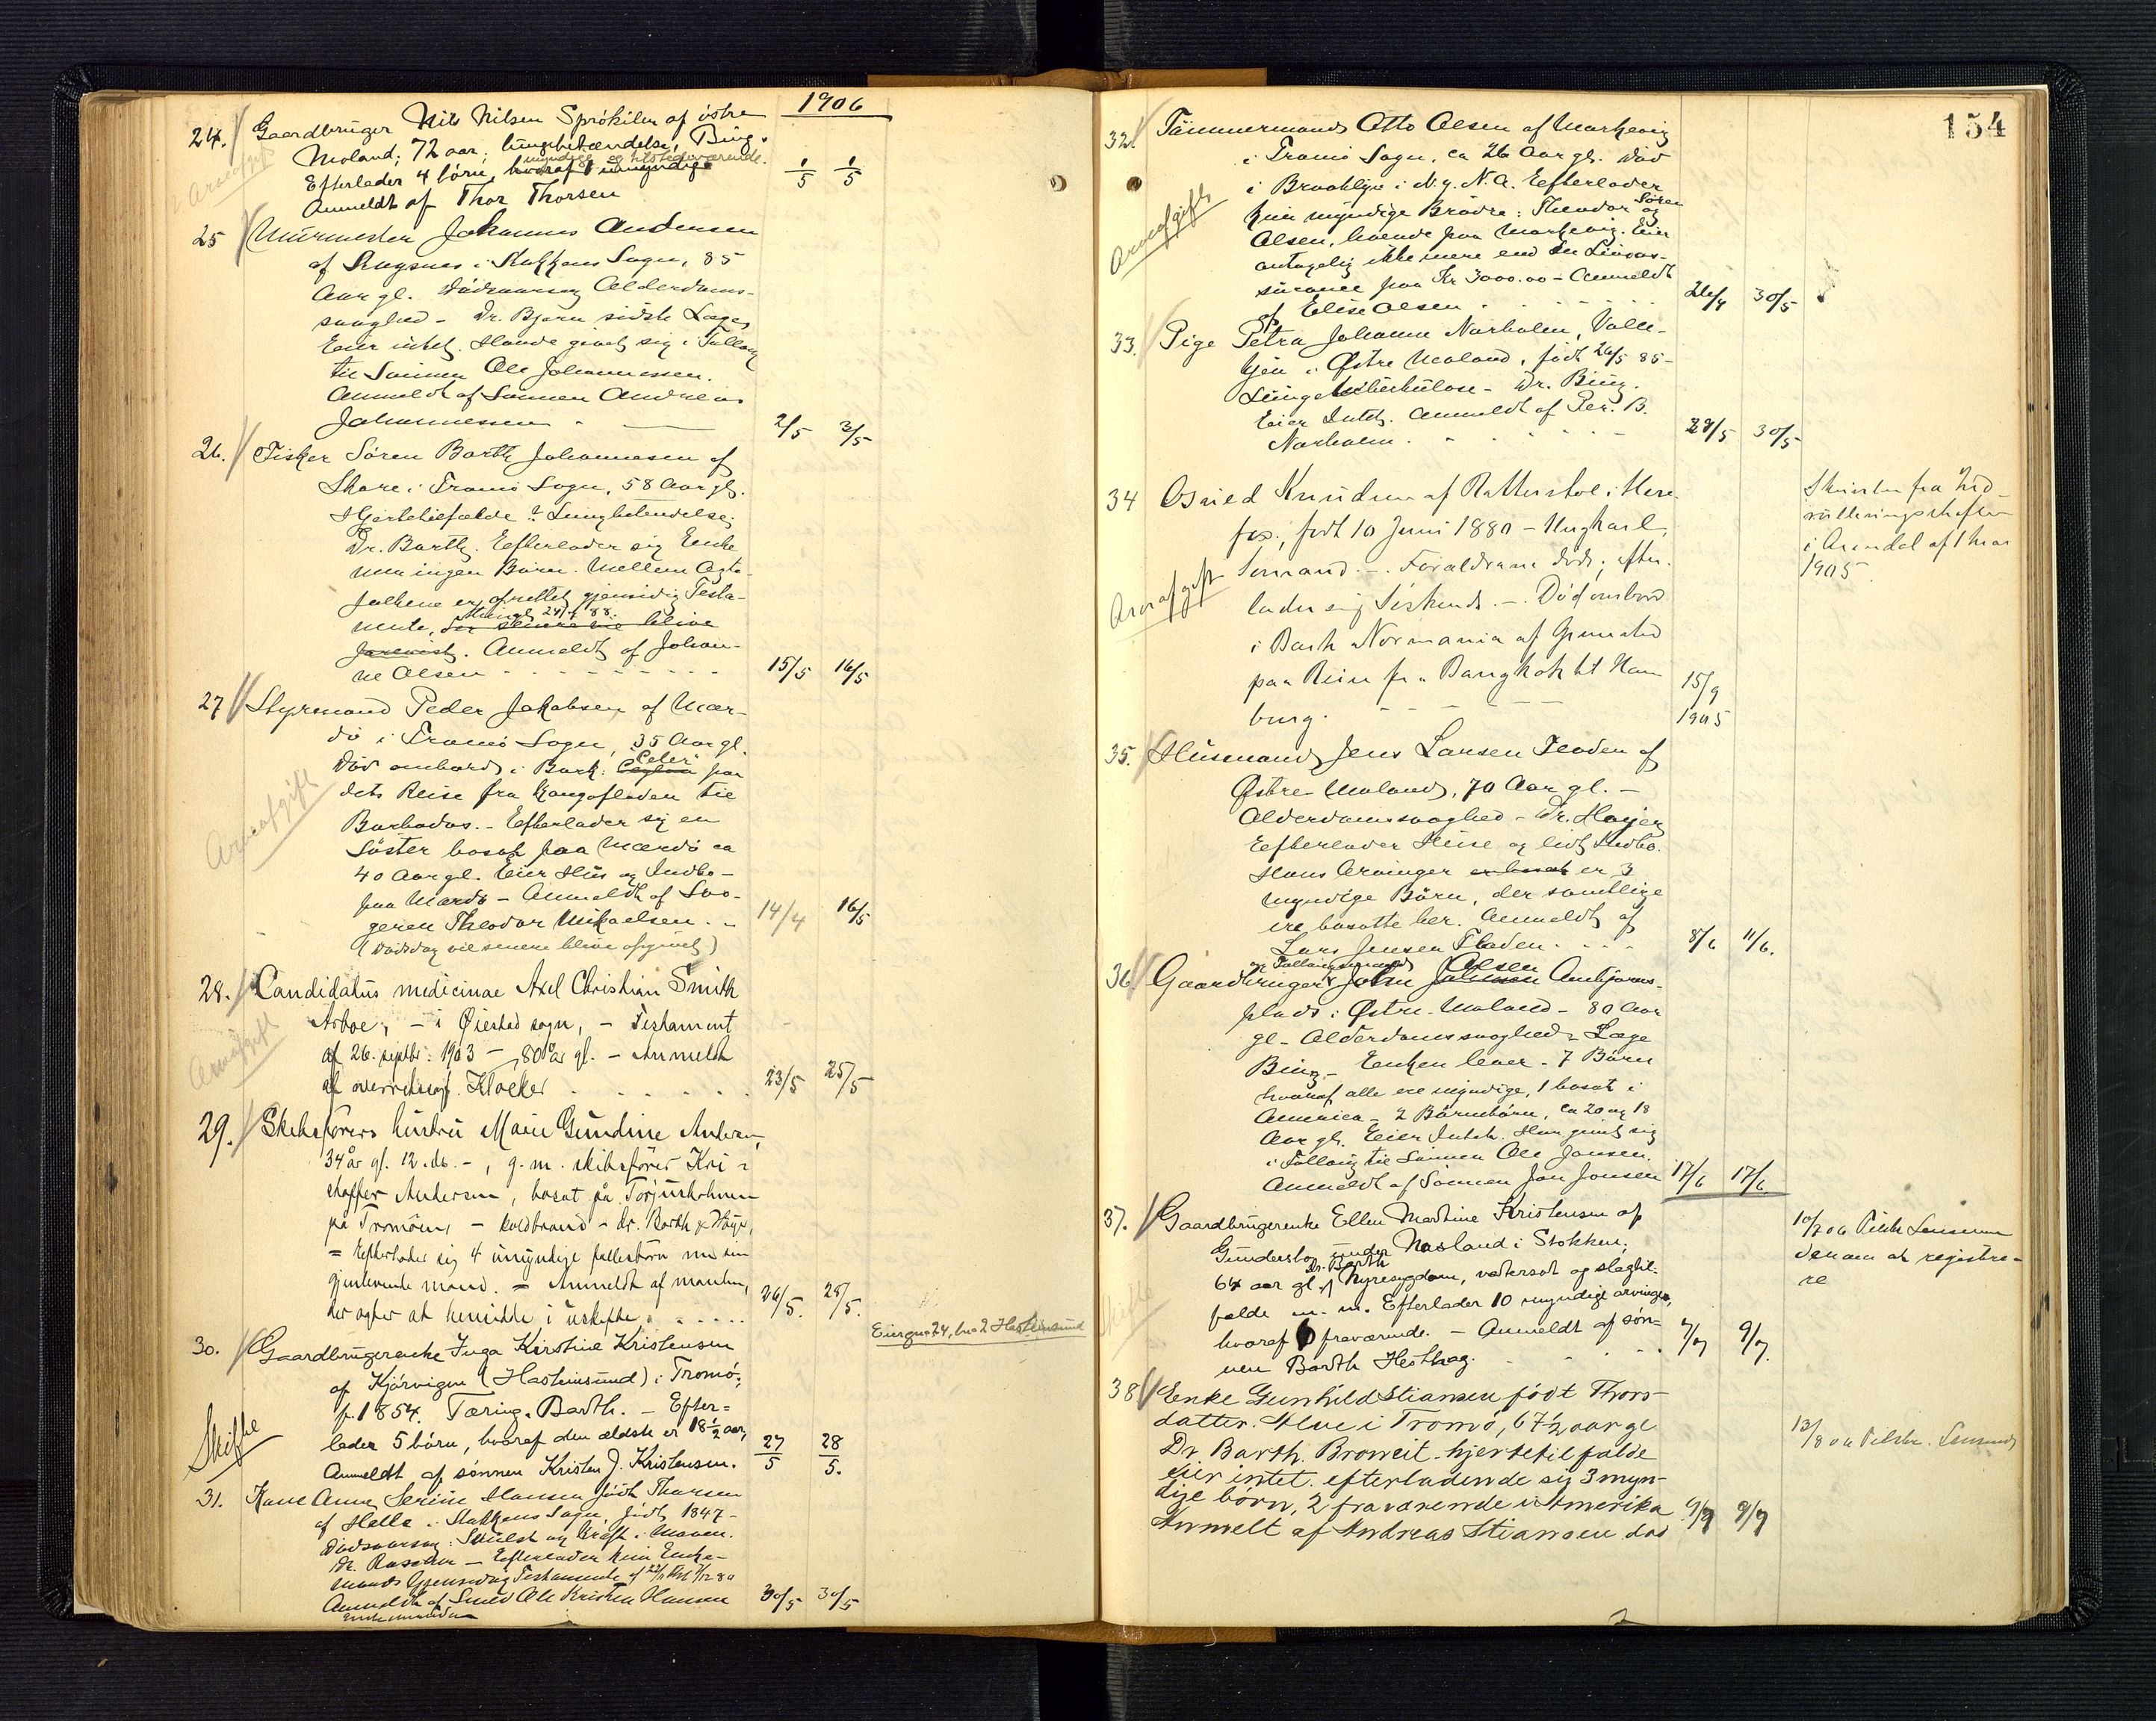 1906
24. Gaardbruger Nils Nilsen Sprökilen af östre
Moland; 72 aar; lungebetændelse, Bing.
myndige og tilstedeværende.
Efterlader 4 börn, hvoraf 1 umyndige
Anmeldt af Thor Thorsen
1/5 1/5
Arveafgift
25 Murmester Johannes Andersen
af Sagsnes i Stokkens Sogn, 85
Aar gl. Dödsaarsag Alderdoms-
svaghed - Dr. Bjorn sidste Læge,
Eier intet. Havde givet sig i Follaug
til Sönnen Ole Johannessen.
Anmeldt af Sönnen Andreas
Johannessen 2/5 3/5
26. Fisker Sören Barth Johannesen af
Skare i Tromö Sogn, 58 Aar gl.
Hjertetilfælde? Lungbetendelse;
Dr. Barth. Efterlader sig Enke
men ingen Börn. Mellem Ægte-
folkene er oprettet gjensidig Testa-
thingl. 24/4 88.
mente, der senere vil blive
forevist. Anmeldt af Johan-
ne Olsen 15/5 16/5
27 Styrmand Peder Jakobsen af Mær-
dö i Tromö Sogn, 35 Aar gl.
Peter
Död ombord i Bark: Ceylon paa
dets Reise fra Kongofloden til
Barbados. - Efterlader sig en
Söster bosat paa Mærdö ca
40 Aar gl. Eier Hus og Indbo -
paa Mærdö - Anmeldt af Svo-
geren Theodor Mikaelsen. - 14/4 16/5
(Dödsdag vil senere blive opgivet)
Arveafgift
28. Candidatus medicinae Axel Christian Smith
Arboe, - i Øiestad sogn, - Testament
af 26. septbr. 1903 - 80 år gl. - Anmeldt
af overretssagf. Klocker 23/5 25/5
Arveafgift
29. Skibsförers hustru Marie Gundine Andersen,
34 år gl. 12. ds. -, g. m. skibsförer Kri-
stoffer Andersen, bosat på Torjusholmen
på Tromöen, - koldbrand - dr. Barth & Höyer,
= Efterlader sig 4 umyndige fællesbörn med sin
gjenlevende mand. = Anmeldt af manden,
der agter at hensidde i uskifte. 26/5. 28/5.
30. Gaardbrugerenke Inga Kirstine Kristensen
af Kjörvigen (Hastensund) i Tromö;
f. 1854. Tæring. Barth. - Efter=
lader 5 börn, hvoraf den ældste er 18½ aar,
Anmeldt af sönnen Kristen J. Kristensen. 27/5 28/5.
Skifte
Eier gno 24, bno 2 Hastensund
31. Kone Anne Serine Hansen födt Thorsen
af Helle i Stokkens Sogn, födt 1847 -
Dödsaarsag: Svulst og Kræft i Maven.
Dr. - Efterlader kun Enke-
mand. Gjensidig Testamente af
Anmeldt af Smed Ole Kristen Hansen 30/5 30/5
Enkemanden
154
32. Tömmermand Otto Olsen af Markevig
i Tromö Sogn, ca 26 Aar gl. död
i Brooklyn i N.y. N.A. Eefterlader
kun myndige Brödre: Theodor og Sören
Olsen, boende paa Markevig. Eier
antagelig ikke mere end en Livsas-
surance paa Kr 3000.00 - Anmeldt
af Elise Olsen 26/4 30/5
Arveafgift
33. Pige Petra Johanne Narholm, Valle-
kjen i Østre Moland, födt 26/5 85 -
Lungetuberkulose - Dr. Bing.
Eier Intet. Anmeldt af Per. B.
Narholm. 28/5 30/5
34 Osuled Knudsen af Rattestol i Here
fos, født 10 Juni 1880 - Ungkarl,
Sømand. - Forældrene døde; efter-
lader sig Søskende. - Død ombord
i Bark Normania af Grimstad
paa Reise fra Bangkok til Ham
burg. 15/9 1905
Arveafgift
Skrivelse fra Ind-
rulleringschefen
i Arendal af 1 mar
1905
35. Husmand Jens Larsen Floden af
Østre Moland, 70 Aar gl. -
Alderdomssvaghed - Dr. Höyer
Eefterlader Huse og lidt Indbo.
Hans Arvinger er bosat er 3
myndige Börn, der samtlige
ere bosatte her. Anmeldt af
Lars Jensen Floden. 8/6 11/6.
og Follaugsmand Olsen
36. Gaardbruger John Johnsen Ambjörns-
plads i Østre Moland - 80 Aar
gl - Alderdomssvaghed - Læge
Bing - Enken lever - 7 Börn
hvoraf alle ere myndige, 1 bosat i
America - 2 Börnebörn, ca 20 og 18
Aar gl. Eier Intet. Har givet sig
i Follaug til Sönnen Ole Jonsen.
Anmeldt af Sönnen Jon Jonsen 17/6 17/6
37. Gaardbrugerenke Ellen Martine Kristensen af
Gunderstog under Næsland i Stokken;
dr. Barth
64 aar gl. Nyresygdom, vatersot og slagtil-
fælde m. m. Efterlader 10 myndige arvinger,
hvoraf 6 fraværende. - Anmeldt af søn=
nen Barth Hesthag. 7/7 9/7.
Skifte
10/7 06 Tilskr Lensmanden
denom at registre-
re
38 Enke Gunhild Stiansen födt Thors-
datter. Hove i Tromö, 67½ aar gl
Dr. Barth. Bronkit - hjertetilfælde
eier intet. efterladende sig 3 myn-
dige börn, 2 fraværende i Amerika
Anmelt af Andreas Stiansen dos 9/7 9/7
13/8 06 Tilskr. Lensmd